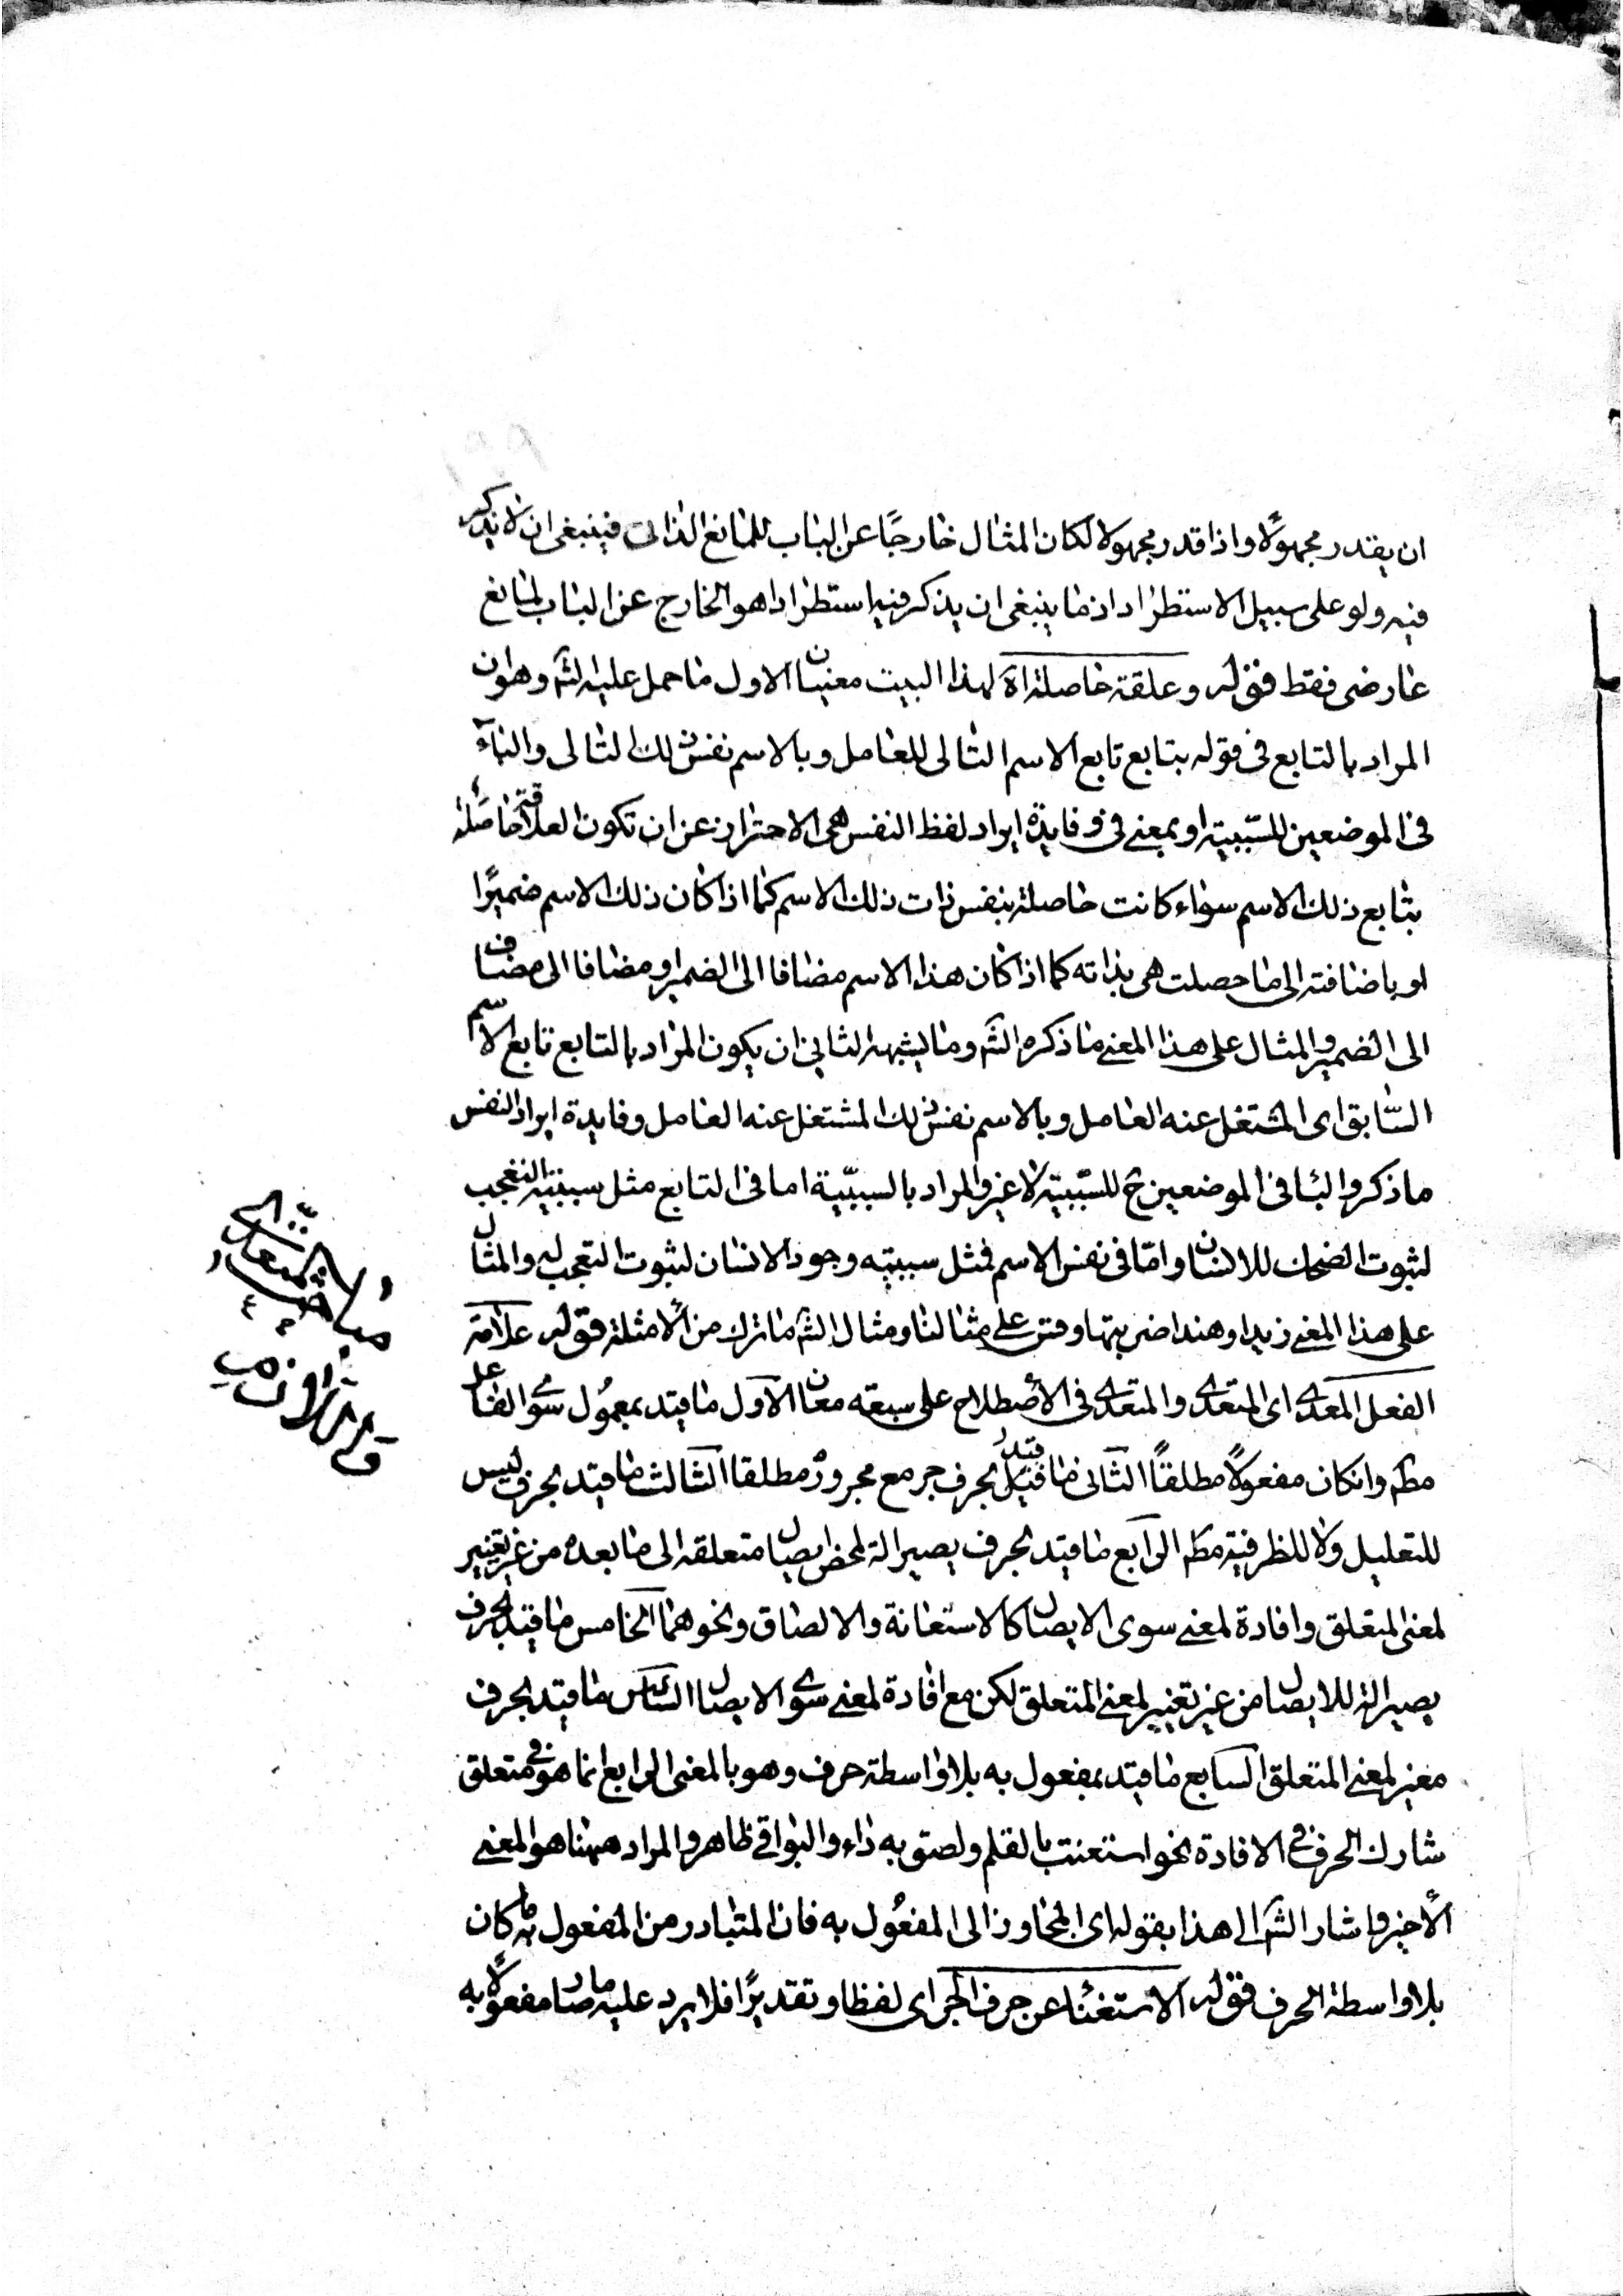 ان يقدر مجهولًا واذا قدر مجهولا لكان المثال خارجًا عن الباب للمانع الذاتى فينبغى ان لا يذكر
فيه ولو على سبيل الاستطراد اذ ما ينبغى ان يذكر فيه استطرادا هو الخارج عن الباب لمانع
عارضى فقط قوله وعلقة حاصلة اه لهذا البيت معنيان الاول ما حمل عليه الشم وهو ان
المراد بالتابع فى قوله بتابع تابع الاسم التالى للعامل وبالاسم نفس ذلك التالى والباء
فى الموضعين للسّببية او بمعنى فى وفايدة ايراد لفظ النفس هى الاحتراز عن ان تكون العلاقة حاصلة
بتابع ذلك الاسم سواء كانت حاصلة بنفس ذات ذلك الاسم كما اذا كان ذلك الاسم ضميرًا
او باضافته الى ما حصلت هى بذاته كما اذا كان هذا الاسم مضافا الى الضمير او مضافا الى مضاف
الى الضمير والمثال على هذا المعنى ما ذكره الشم وما يشبهه الثانى ان يكون المراد بالتابع تابع الاسم
السّابق اى المشتغل عنه العامل وبالاسم نفس ذلك المشتغل عنه العامل وفايدة ايراد النفس
ما ذكر والبا فى الموضعين ح للسّببية لا غير والمراد بالسببيّة اما فى التابع مثل سببية التعجب
لثبوت الضحك للانسان واما فى نفس الاسم فمثل سببيته وجود الانسان لثبوت التعجب له والمثال
على هذا المعنى زيدا وهندا ضربتها وقس على مثالنا ومثال الشم ما ترك من الأمثلة قوله علامة
الفعل المعدى اى المتعدى والمتعدى فى الأصطلاح على سبعة معان الاول ما قيّد بمعمول سوى الفاعل
مطم وان كان مفعولًا مطلقًا الثانى ما قيّد بحرف جر مع مجروره مطلقا الثالث ما قيّد بحرف ليس
للتعليل ولا للظرفية مطم الرابع ما قيّد بحرف يصير الة لمحض ايصال متعلقه الى ما بعده من غير تغيير
لمعنى المتعلق وافادة لمعنى سوى الايصال كالاستعانة والالصاق ونحوهما الخامس ما قيّد بحرف
يصير الة للايصال من غير تغيير لمعنى المتعلق لكن مع افادة لمعنى سوى الايصال السادس ما قيّد بحرف
مغير لمعنى المتعلق السابع ما قيّد بمفعول به بلا واسطة حرف وهو بالمعنى الرابع انما هو فى متعلق
شارك الحرف فى الافادة نحو استعنت بالقلم ولصق به داء والبواقى ظاهر والمراد ههنا هو المعنى
الأخير واشار الشم الى هذا بقوله اى المجاوز الى المفعول به فان المتبادر من المفعول به ما كان
بلا واسطة الحرف قوله الاستغنا عن حرف الجر اى لفظا وتقديرًا فلا يرد عليه ما صار مفعولًا به